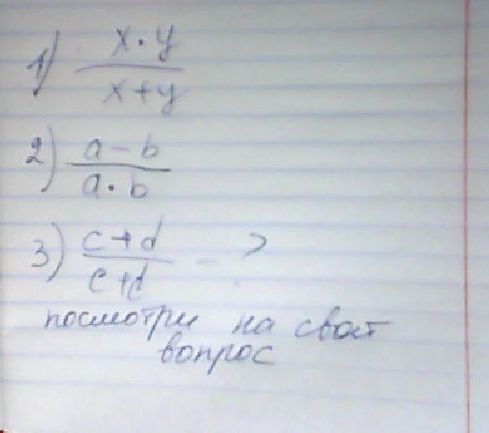 1) x·y
x+y
2) a-b
a·b
3) c+d - ?
c+d
посмотри на свой
вопрос